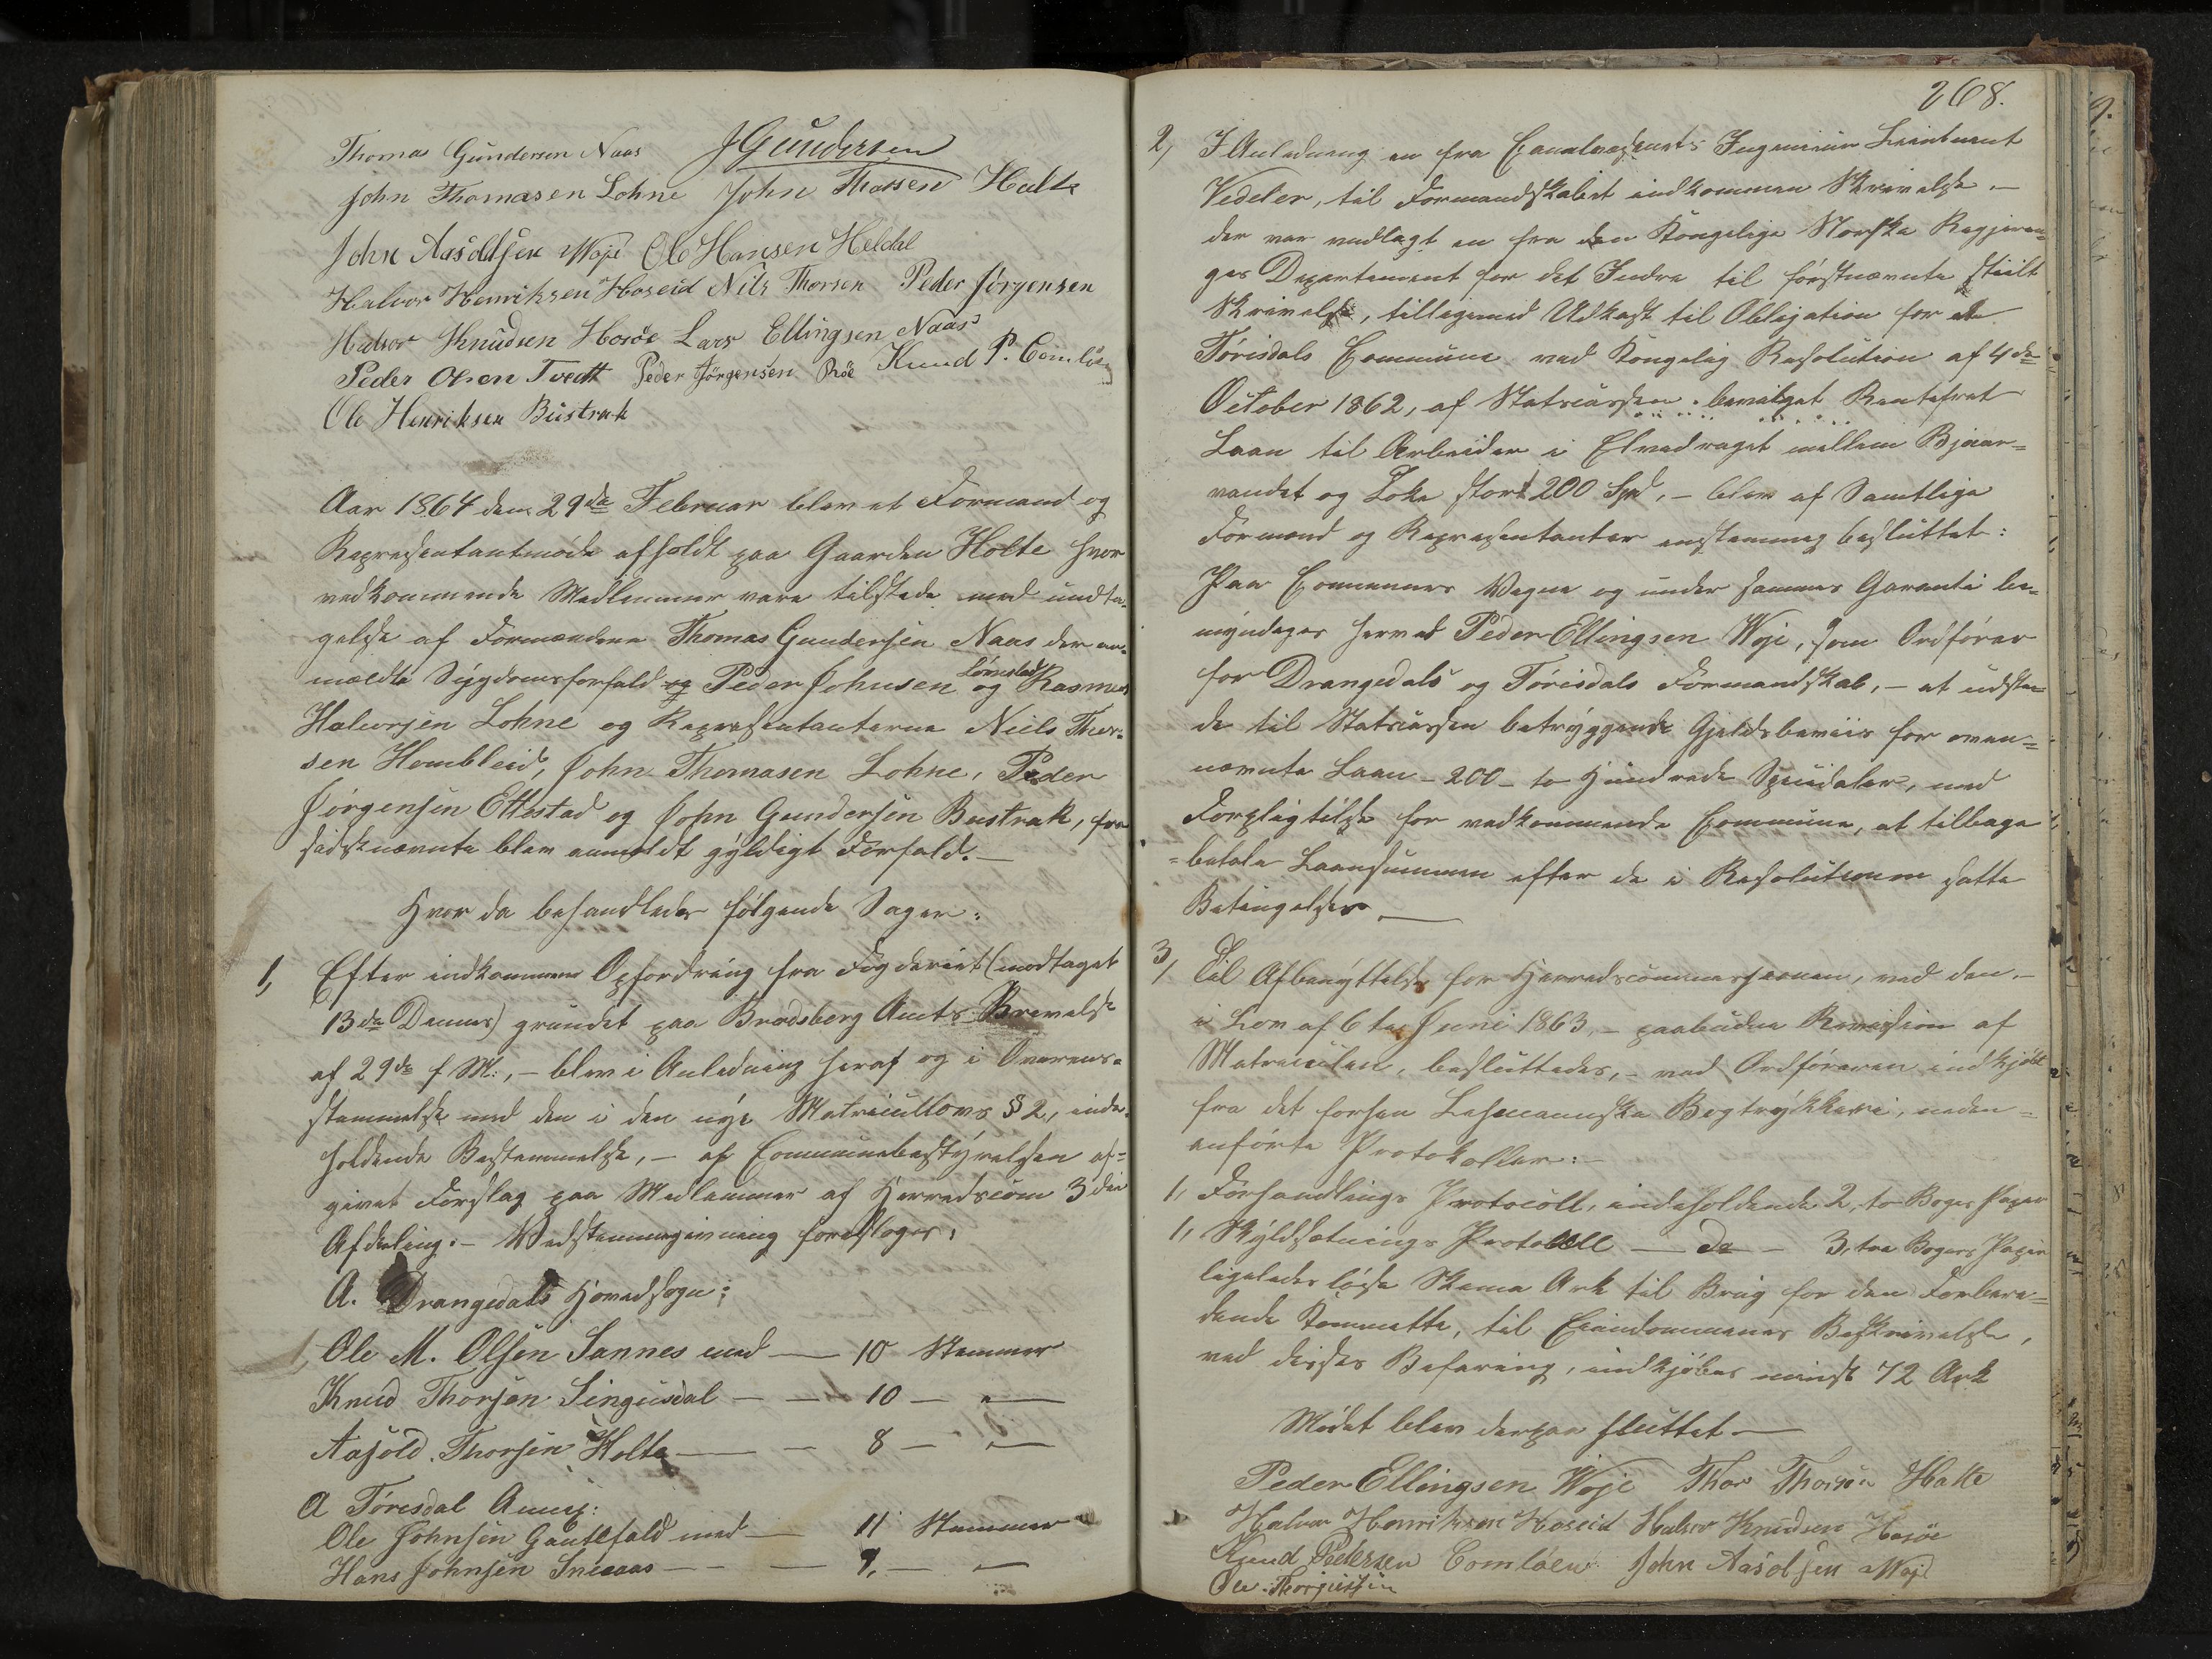 Thomas Gundersen Naas JGundersen
John Thomasen Lohne John Thorsen Holte
John Aasoldsen Woje Ole Hansen Heldal
Halvor Henriksen Hoseid Nils Thorsen Peder Jørgensen
Halvor Knudsen Hosøe Lars Ellingsen Naas
Peder Olsen Tvedt Peder Jørgensen Röe Knud P.
Ole Henriksen Bustrak
Aar 1864 den 29de Februar blev et Formand og
Repræsentantmøde afholdt paa Gaarden Holte hvor
vedkommende Medlemmer vare tilstede med undta-
gelse af Formændene Thomas Gundersen Naas der an-
mældte Sygdomsforfald og Peder Johnsen og Rasmus
Halvorsen Lohne og Repræsentanterne Niels Thor-
sen Hombleid, John Thomasen Lohne, Peder
Jørgensen Ettestad og John Gundersen Bustrak, for
sidstnævnte blev anmeldt gyldigt Forfald.—
Hvor da behandledes følgende Sager:
1, Efter indkommen Opfordring fra Fogderiet (modtaget
13de Dennes) grundet paa Bradsberg Amts Skrivelse
af 29de f M:, - blev i Anledning heraf og i Overens-
stemmelse med den i den nye Matriculovs § 2, inde-
holdende Bestemmelse, - af Communebestyrelsen af-
givet Forslag paa Medlemmer af Herredscom 3die
Afdeling.- Vedstemmegivning foresloges:
A. Drangedals Hovedsogn:
1, Ole M. Olsen Sannes med — 10 Stemmer
Knud Thorsen Singusdal — — 10 — " —
Aasold Thorsen Holte — — 8 — " —
A Tørisdal Annex:
Ole Johnsen Gautefald med — 11 Stemmer
Hans Johnsen — — 7, — —
268.
2, I Anledning en fra Canalvæsenets Ingeniør Lieutnant
Vedeler, til Formandskabet indkommen Skrivelse —
der var vedlagt en fra den Kongelige Norske Regjerin-
ges Departement for det Indre til førstnævnte stiilt
Skrivelse, tilligemed Udkast til Obligation for et
Tørisdals Commune ved Kongelig Resolution af 4de
October 1862, af Statscassen bevilget Rentefrit
Laan til Arbeider i Elvedraget mellem Bjaar-
vandet og Toke stort 200 Spd, - blev af Samtlige
Formænd og Repræsentanter enstemmig besluttet:
Paa Communens Vegne og under sammes Garanti be-
myndiges herved Peder Ellingsen Woje, som Ordfører
for Drangedals og Tørisdals Formandskab, - at udste-
de til Statscassen betryggende Gjeldsbeviis for oven-
nævnte Laan - 200 - to Hundrede Speciedaler, med
Forpligtelse for vedkommende Commune, at tilbage
-betale Laansummen efter de i Resolutionen satte
Betingelser —
3, Til Afbenyttelse for Herredscommissionen, ved den -
i Lov af 6te Juni 1863, - paabudne Revision af
Matriculen, besluttedes, - ved Ordføreren indkjøbt
fra det forhen Lehmannske Bogtrykkeri, neden-
anførte Protokoller: -
1, Forhandlings Protocoll, indeholdende 2, to Boger Papir
1, Skyldsætnings Protokoll — do — 3, tre Bogers Papir
ligeledes løse Skema Ark til Brug for den Forbere-
dende Kommitte, til Eiendommenes Beskrivelse,
ved disses Befaring, indkjøbes mindst 72 Ark
Mødet blev derpaa sluttet —
Peder Ellingsen Woje Thor Thorsen Holte
Halvor Henriksen Hoseid Halvor Knudsen Hosøe
Knud Pedersen John Aasoldsen Woje
Ole Thorgussen